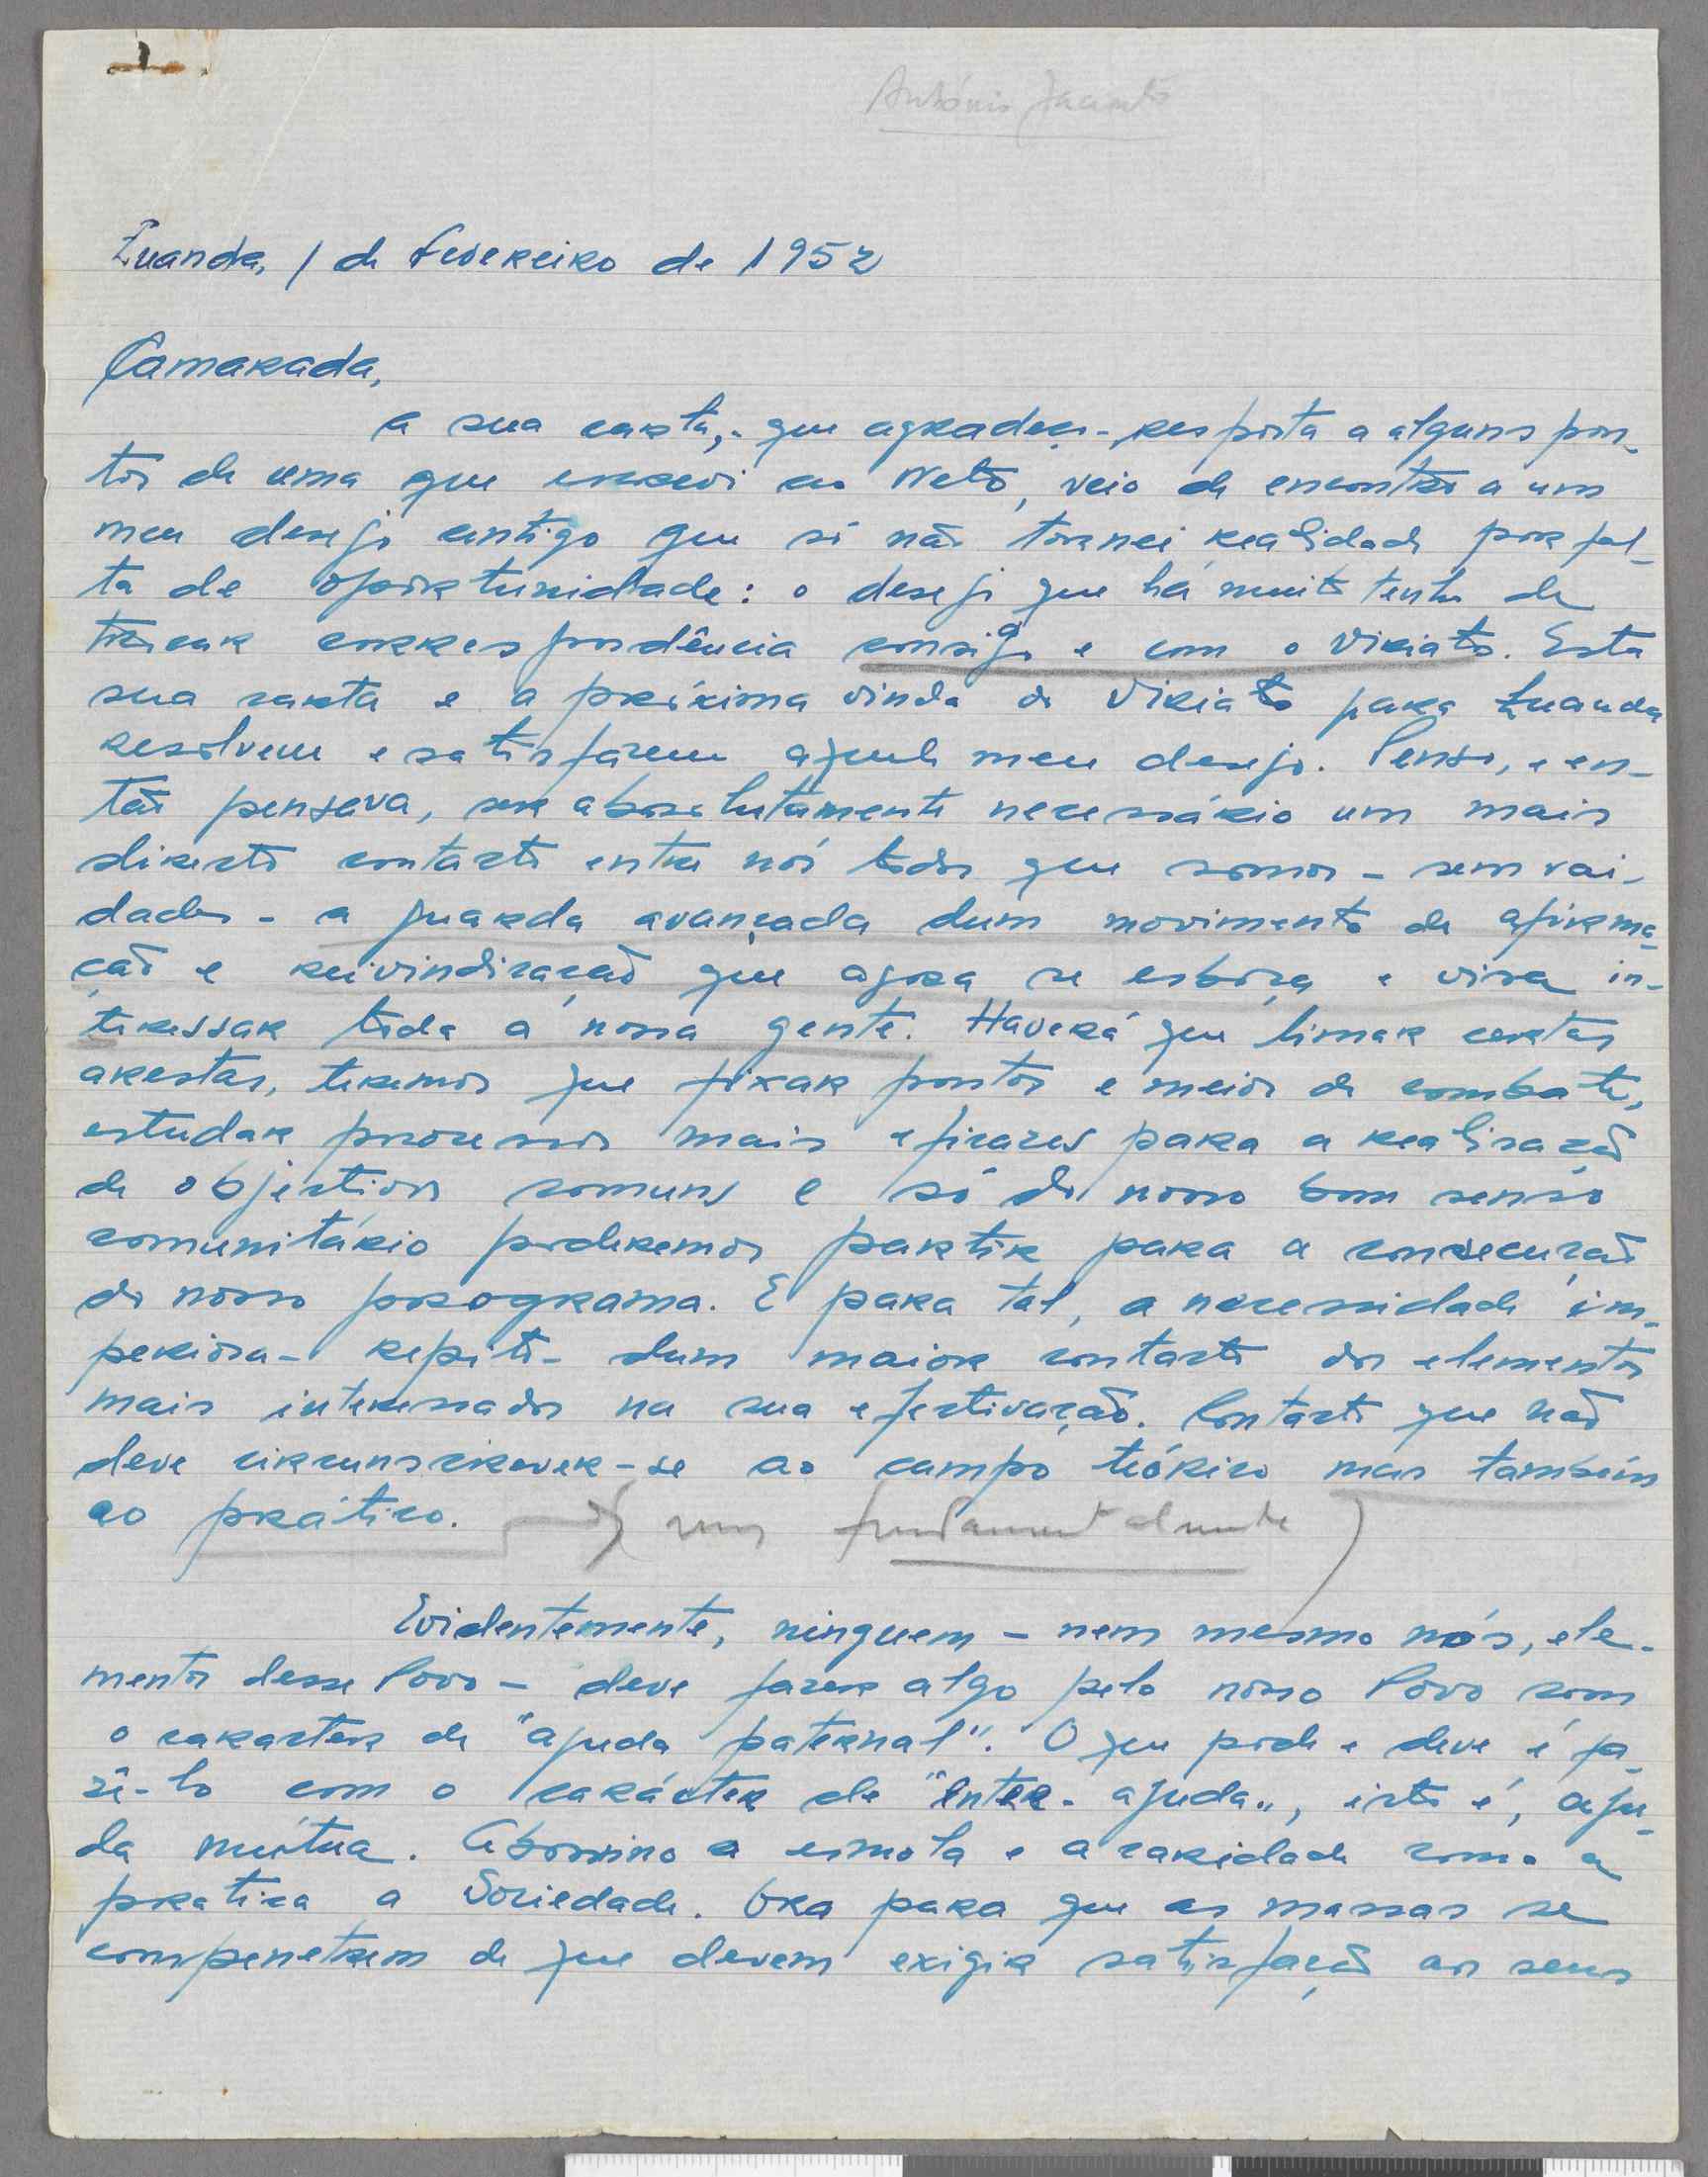 António Jacinto
Luanda, 1 de Fevereiro de 1952
Camarada,
a sua carta, - que agradeço - resposta a alguns pon-
tos de uma que escrevi ao Neto, veio de encontro a um
meu desejo antigo que só não tornei realidade por fal-
ta de oportunidade: o desejo que há muito tenho de
trocar correspondência consigo e com o Viriato. Esta
sua carta e a próxima vinda do Viriato para Luanda
resolvem e satisfazem aquele meu desejo. Penso, e en-
tão pensava, ser absolutamente necessário um mais
directo contacto entre nós todos que somos - sem vai-
dades - a guarda avançada dum movimento de afirma-
ção e reivindicação que agora se esboça e visa in-
teressar toda a nossa gente. Haverá que limar certas
arestas, teremos que fixar pontos e meios de combate,
estudar processos mais eficazes para a realização
de objectivos comuns e só do nosso bom senso
comunitário poderemos partir para a consecução
do nosso programa. E para tal, a necessidade im-
periosa - repito - dum maior contacto dos elementos
mais interessados na sua efectivação. Contacto que não
deve circunscrever-se ao campo teórico mas também
ao prático. fundamentalmente)
Evidentemente, ninguem - nem mesmo nós, ele-
mentos desse Povo - deve fazer algo pelo nosso Povo com
o caracter de "ajuda paternal". O que pode e deve é fa-
zê-lo com o carácter de "inter-ajuda", isto é, aju-
da mútua. Abomino a esmola e a caridade como a
pratica a Sociedade. Ora para que as massas se
compenetrem de que devem exigir satisfação aos seus